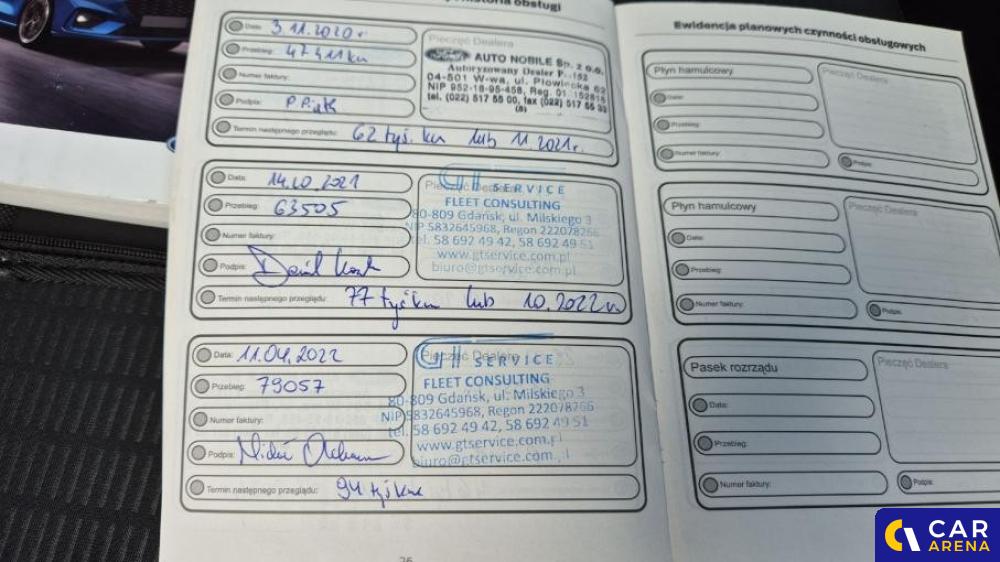 historia obsługi
Data: 3.11.2020r
Przebieg: 47411km
Numer faktury:
Podpis: P. Piątk
Pieczęć Dealera
AUTO NOBILE Sp. z o.o.
Autoryzowany Dealer 152
04-501 W-wa, ul. Płowiecka 62
NIP 952-18-95-458, Reg. 01 152815
tel. (022) 517 55 00, fax (022) 517 55 33
(8)
Termin następnego przeglądu: 62 tyś. km lub 11.2021r.
Data: 14.10.2021
Przebieg: 63505
Numer faktury:
Podpis:
Pieczęć Dealera
GT SERVICE
FLEET CONSULTING
80-809 Gdańsk, ul. Milskiego 3
NIP 5832645968, Regon 222078266
tel. 58 692 49 42, 58 692 49 51
www.gtservice.com.pl
biuro@gtservice.com.pl
Termin następnego przeglądu: 77 tyś km lub 10.2022r
Data: 11.04.2022
Przebieg: 79057
Numer faktury:
Podpis:
Pieczęć Dealera
GT SERVICE
FLEET CONSULTING
80-809 Gdańsk, ul. Milskiego 3
NIP 5832645968, Regon 222078266
tel. 58 692 49 42, 58 692 49 51
www.gtservice.com.pl
biuro@gtservice.com.pl
Termin następnego przeglądu: 94 tyś km
26
Ewidencja planowych czynności obsługowych
Płyn hamulcowy
Data:
Przebieg:
Numer faktury:
Pieczęć Dealera
Podpis:
Płyn hamulcowy
Data:
Przebieg:
Numer faktury:
Pieczęć Dealera
Podpis:
Pasek rozrządu
Data:
Przebieg:
Numer faktury:
Pieczęć Dealera
Podpis:
CAR
ARENA